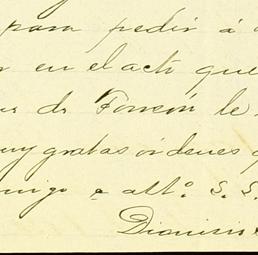 para pedir á
en el acto que
de Torreon le
muy gratas órdenes
amigo e atto. S. S.
Dionisio